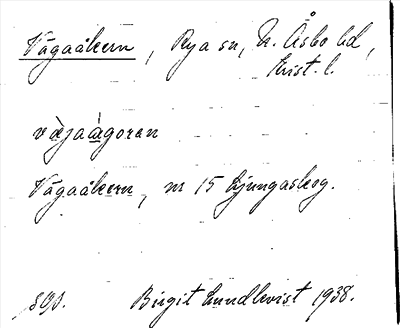 Vägaåkern, Rya sn, N. Åsbo hd,
Krist. l.
vä̀jaágoren
Vägaåkern, nr 15 Ljungaskog.
Birgit Lundkvist 1938.